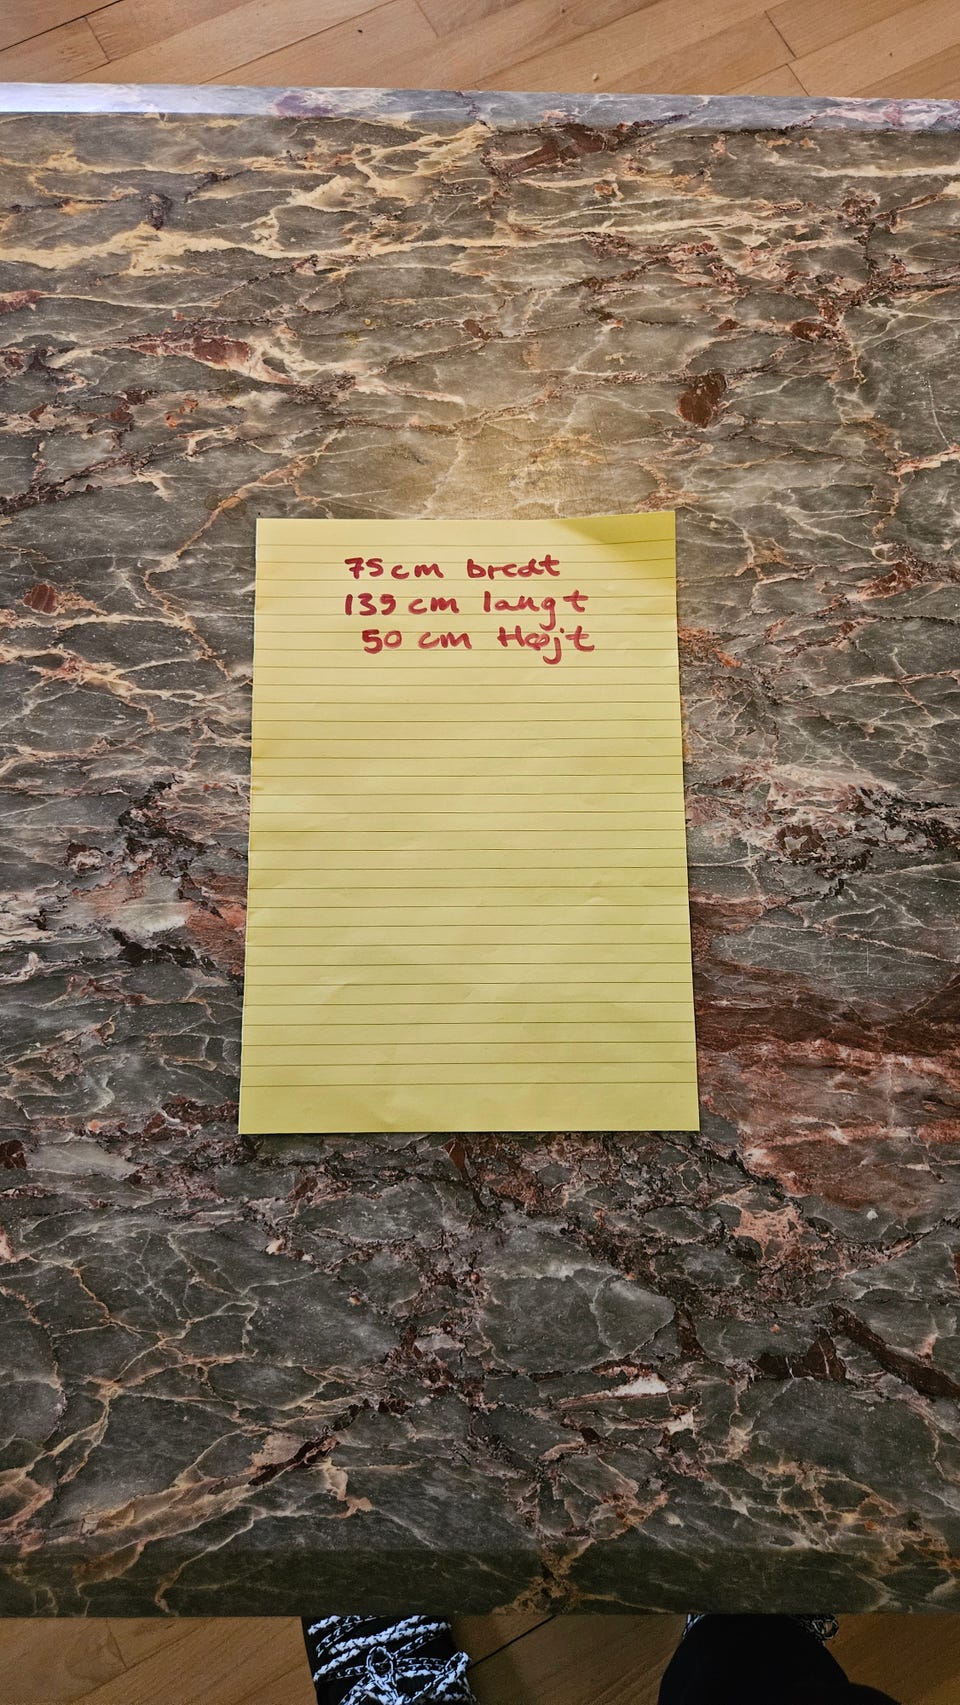 75 cm bredt
139 cm langt
50 cm Højt